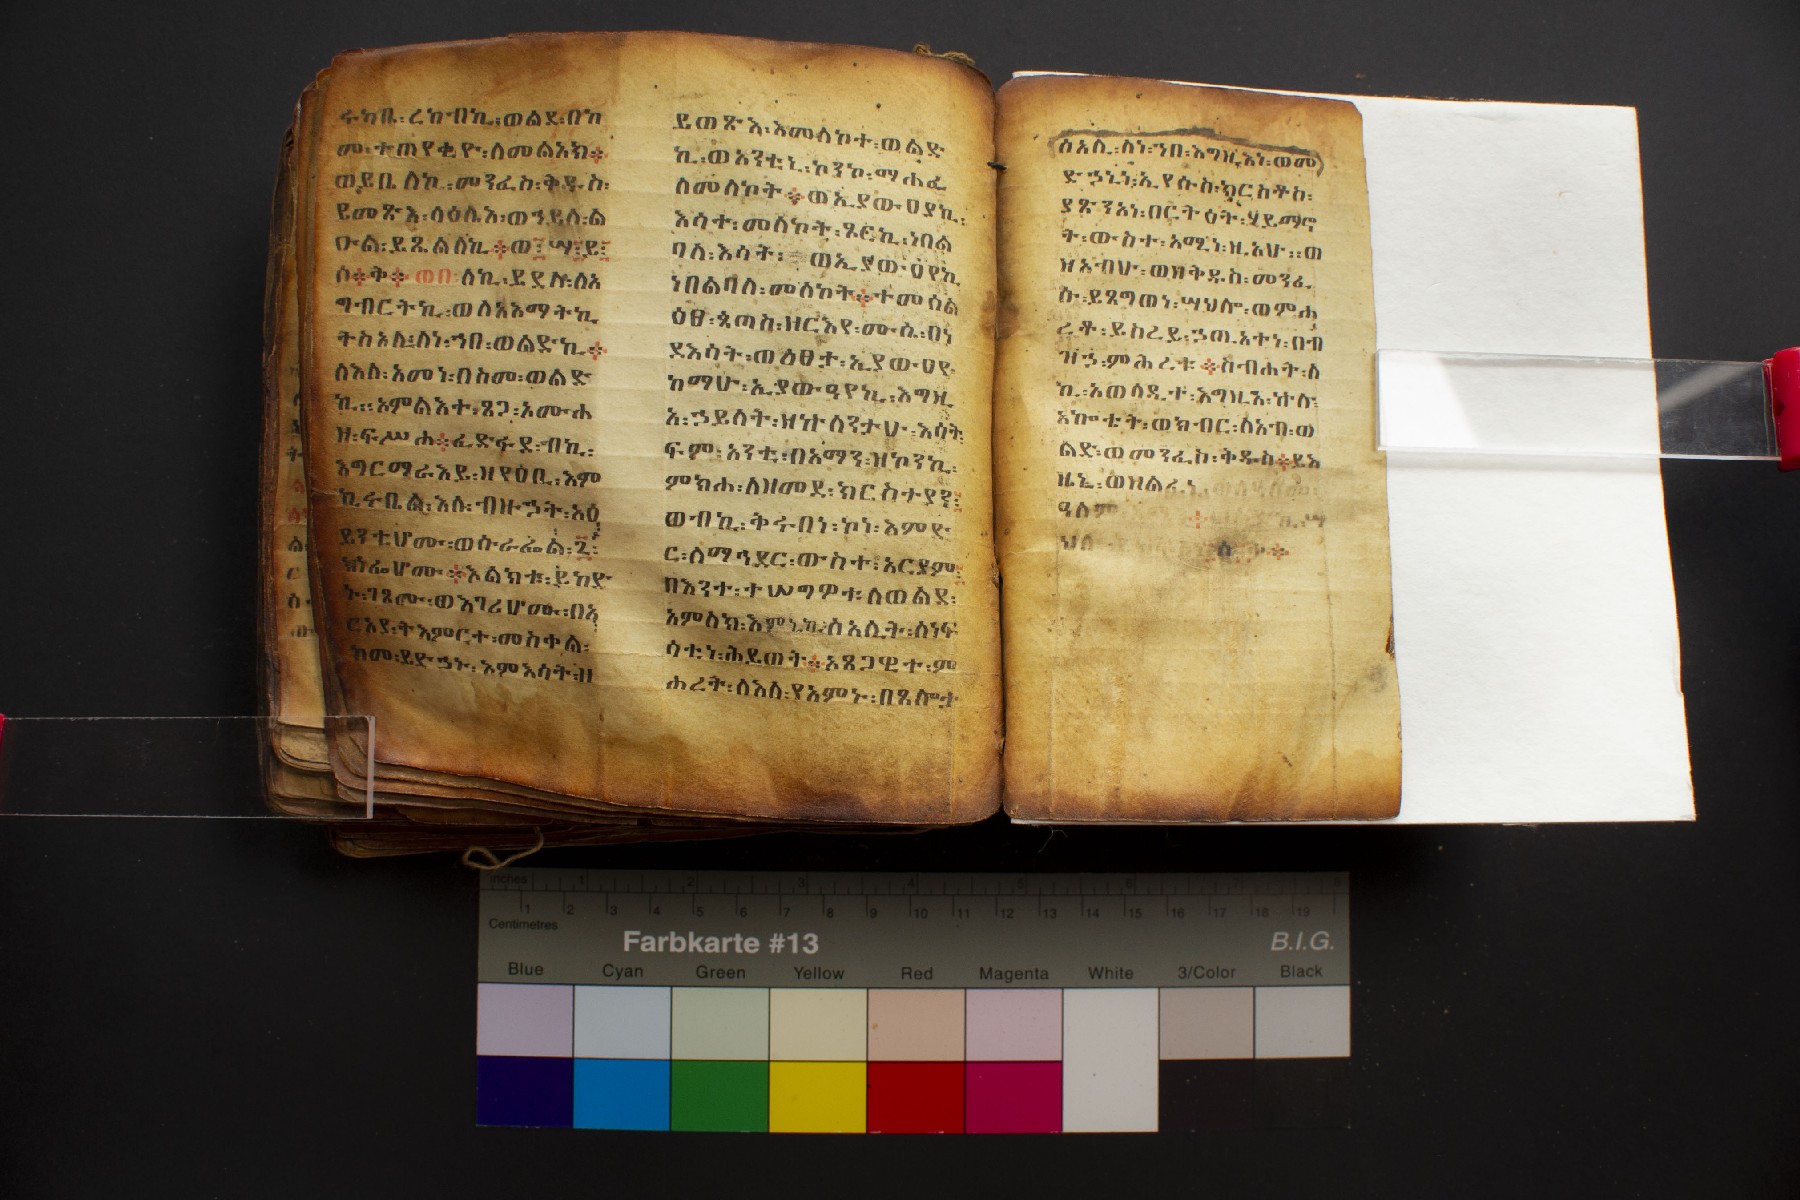 ሩካቤ፡ረከብኪ፡ወልደ፡በከ
መ፡ተጠየቂዮ፡ለመልአክ፨
ወይቤ ለኪ፡መንፈስ፡ቅዱስ፡
ይመጽእ፡ላዕሌኪ፡ወኀይለ፡ል
ዑል፡ይጼልለኪ፨
ወበ ለኪ፡ይደሉ፡ሰአ
ግብርትኪ፡ወለአእማትኪ
ትስአሊ፡ለነ፡ኀበ፡ወልድኪ፨
ሰአለ፡አመነ፡በስመ፡ወልድ
ኪ፡፡አምልእተ፡ጸጋ፡አሙሐ
ዘ፡ፍሥሐ፨ፈድፋደ፡ብኪ፡
እግርማራእይ፡ዘየዐቢ፡እም
ኪሩቤል፡እለ፡ብዙኃት፡አዕ
ይንቲሆሙ፡ወሱራፌል፡፮፡
ክነፊሆሙ፨እልክቱ፡ይከድ
ኑ፡ገጾሙ፡ወእገሪሆሙ፡በአ
ርአያ፡ትእምርተ፡መስቀል፡
ከመ፡ይድኃኑ፡እምእሳት፡ዘ
ይወጽእ፡እመለኮተ፡ወልድ
ኪ፡ወአንቲኒ፡ኮንኮ፡ማሕፈ
ለመለኮት፨ወኢያውዐየኪ፡
እሳተ፡መለኮት፡ጾሮኪ፡ነበል
ባለ፡እሳት፡ ወኢያውዐየኪ
ነበልባለ፡መለኮት፨ተመሰል
ዕፀ፡ጳጦስ፡ዘርእየ፡ሙሴ፡በነ
ደእሳት፡ወዕፀታ፡ኢያውዐየ፡
ከማሁ፡ኢያውዓየኪ፡እግዚ
አ፡ኃይላት፡ዘኵለንታሁ፡እሳት
ፍም፡አንቲ፡በአማን፡ዘኮንኪ፡
ምክሐ፡ለዘመደ፡ክርስተያን፡
ወብኪ፡ቅሩበነ፡ኮነ፡እምድ
ር፡ለማኅደር፡ውስተ፡አርያም፡
በእንተ፡ተሠግዎቱ፡ለወልደ፡
አምላክ፡እምኔኪ፡ሰአሊት፡ለነፍ
ሳቲነ፡ሕይወት፨አጸጋዊተ፡ም
ሕረት፡ለእለ፡የአምኑ፡በጸሎታ
ሰአሊ፡ለነ፡ኀበ፡እግዚእነ፡ወመ
ድኃኒነ፡ኢየሱስ፡ክርስቶስ፡
ያጽንአነ፡በርትዕት፡ሃይማኖ
ት፡ውስተ፡አሚነ፡ዚአሁ፡፡ወ
ዘአብሁ፡ወዘቅዱስ፡መንፈ
ሱ፡ይጸግወነ፡ሣህሎ፡ወምሐ
ረቶ፡ይስረይ፡ኃጢአተነ፡በብ
ዝኃ፡ምሕረቱ፨ስብሐት፡ለ
ኪ፡አወላዲተ፡እግዚእ፡ኵሉ፡
አኰቴት፡ወክብር፡ለአብ፡ወ
ልድ፡ወመንፈስ፡ቅዱስ፨ይእ
ዜኒ፡ወዘልፈኒ
ዓለም
ህለ
inches
Centimetres
1 2 3 4 5 6 7 8 9 10 11 12 13 14 15 16 17 18 19
Farbkarte #13 B.I.G.
Blue Cyan Green Yellow Red Magenta White 3/Color Black